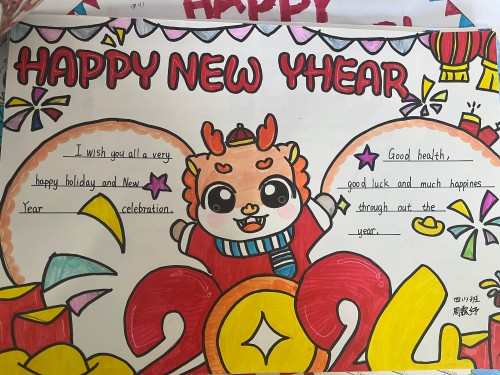 HAPPY NEW YHEAR
I wish you all a very
happy holiday and New
Year celebration.
Good health,
good luck and much happines
through out the
year.
2024
四川班